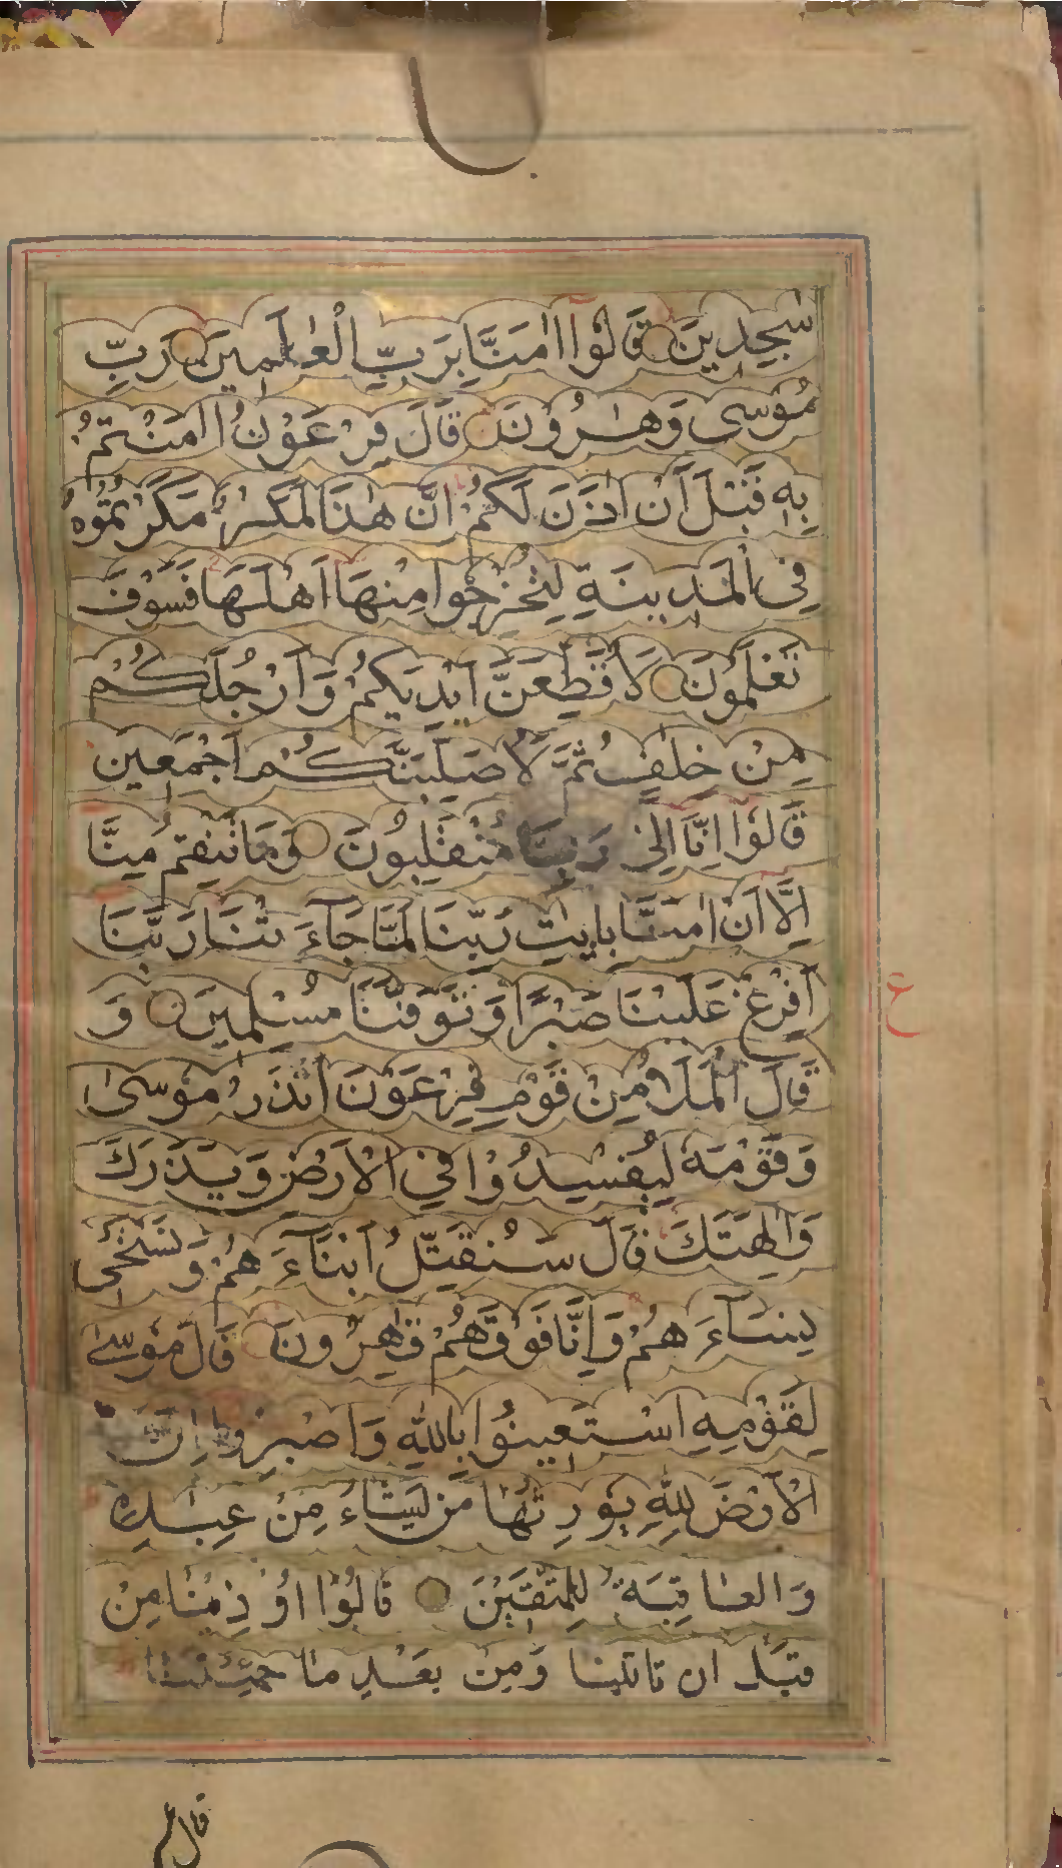 سٰجِدِيْنَ قَالُوْٓا اٰمَنَّا بِرَبِّ الْعٰلَمِيْنَ رَبِّ
مُوْسٰى وَهٰرُوْنَ قَالَ فِرْعَوْنُ اٰمَنْتُمْ
بِهٖ قَبْلَ اَنْ اٰذَنَ لَكُمْ اِنَّ هٰذَا لَمَكْرٌ مَكَرْتُمُوْهُ
فِى الْمَدِيْنَةِ لِتُخْرِجُوْا مِنْهَآ اَهْلَهَا فَسَوْفَ
تَعْلَمُوْنَ لَاُقَطِّعَنَّ اَيْدِيَكُمْ وَاَرْجُلَكُمْ
مِنْ خِلَافٍ ثُمَّ لَاُصَلِّبَنَّكُمْ اَجْمَعِيْنَ
قَالُوْٓا اِنَّآ اِلٰى رَبِّنَا مُنْقَلِبُوْنَ وَمَا تَنْقِمُ مِنَّا
اِلَّآ اَنْ اٰمَنَّا بِاٰيٰتِ رَبِّنَا لَمَّا جَآءَتْنَا رَبَّنَا
اَفْرِغْ عَلَيْنَا صَبْرًا وَتَوَفَّنَا مُسْلِمِيْنَ وَ
ع
قَالَ الْمَلَاُ مِنْ قَوْمِ فِرْعَوْنَ اَتَذَرُ مُوْسٰى
وَقَوْمَهٗ لِيُفْسِدُوْا فِى الْاَرْضِ وَيَذَرَكَ
وَاٰلِهَتَكَ قَالَ سَنُقَتِّلُ اَبْنَآءَهُمْ وَنَسْتَحْىٖ
نِسَآءَهُمْ وَاِنَّا فَوْقَهُمْ قٰهِرُوْنَ قَالَ مُوْسٰى
لِقَوْمِهِ اسْتَعِيْنُوْا بِاللّٰهِ وَاصْبِرُوْا اِنَّ
الْاَرْضَ لِلّٰهِ يُوْرِثُهَا مَنْ يَّشَآءُ مِنْ عِبَادِهٖ
وَالْعَاقِبَةُ لِلْمُتَّقِيْنَ قَالُوْٓا اُوْذِيْنَا مِنْ
قبل ان تاتينا وَمِنْ بعْدِ ما جئتنا
قال